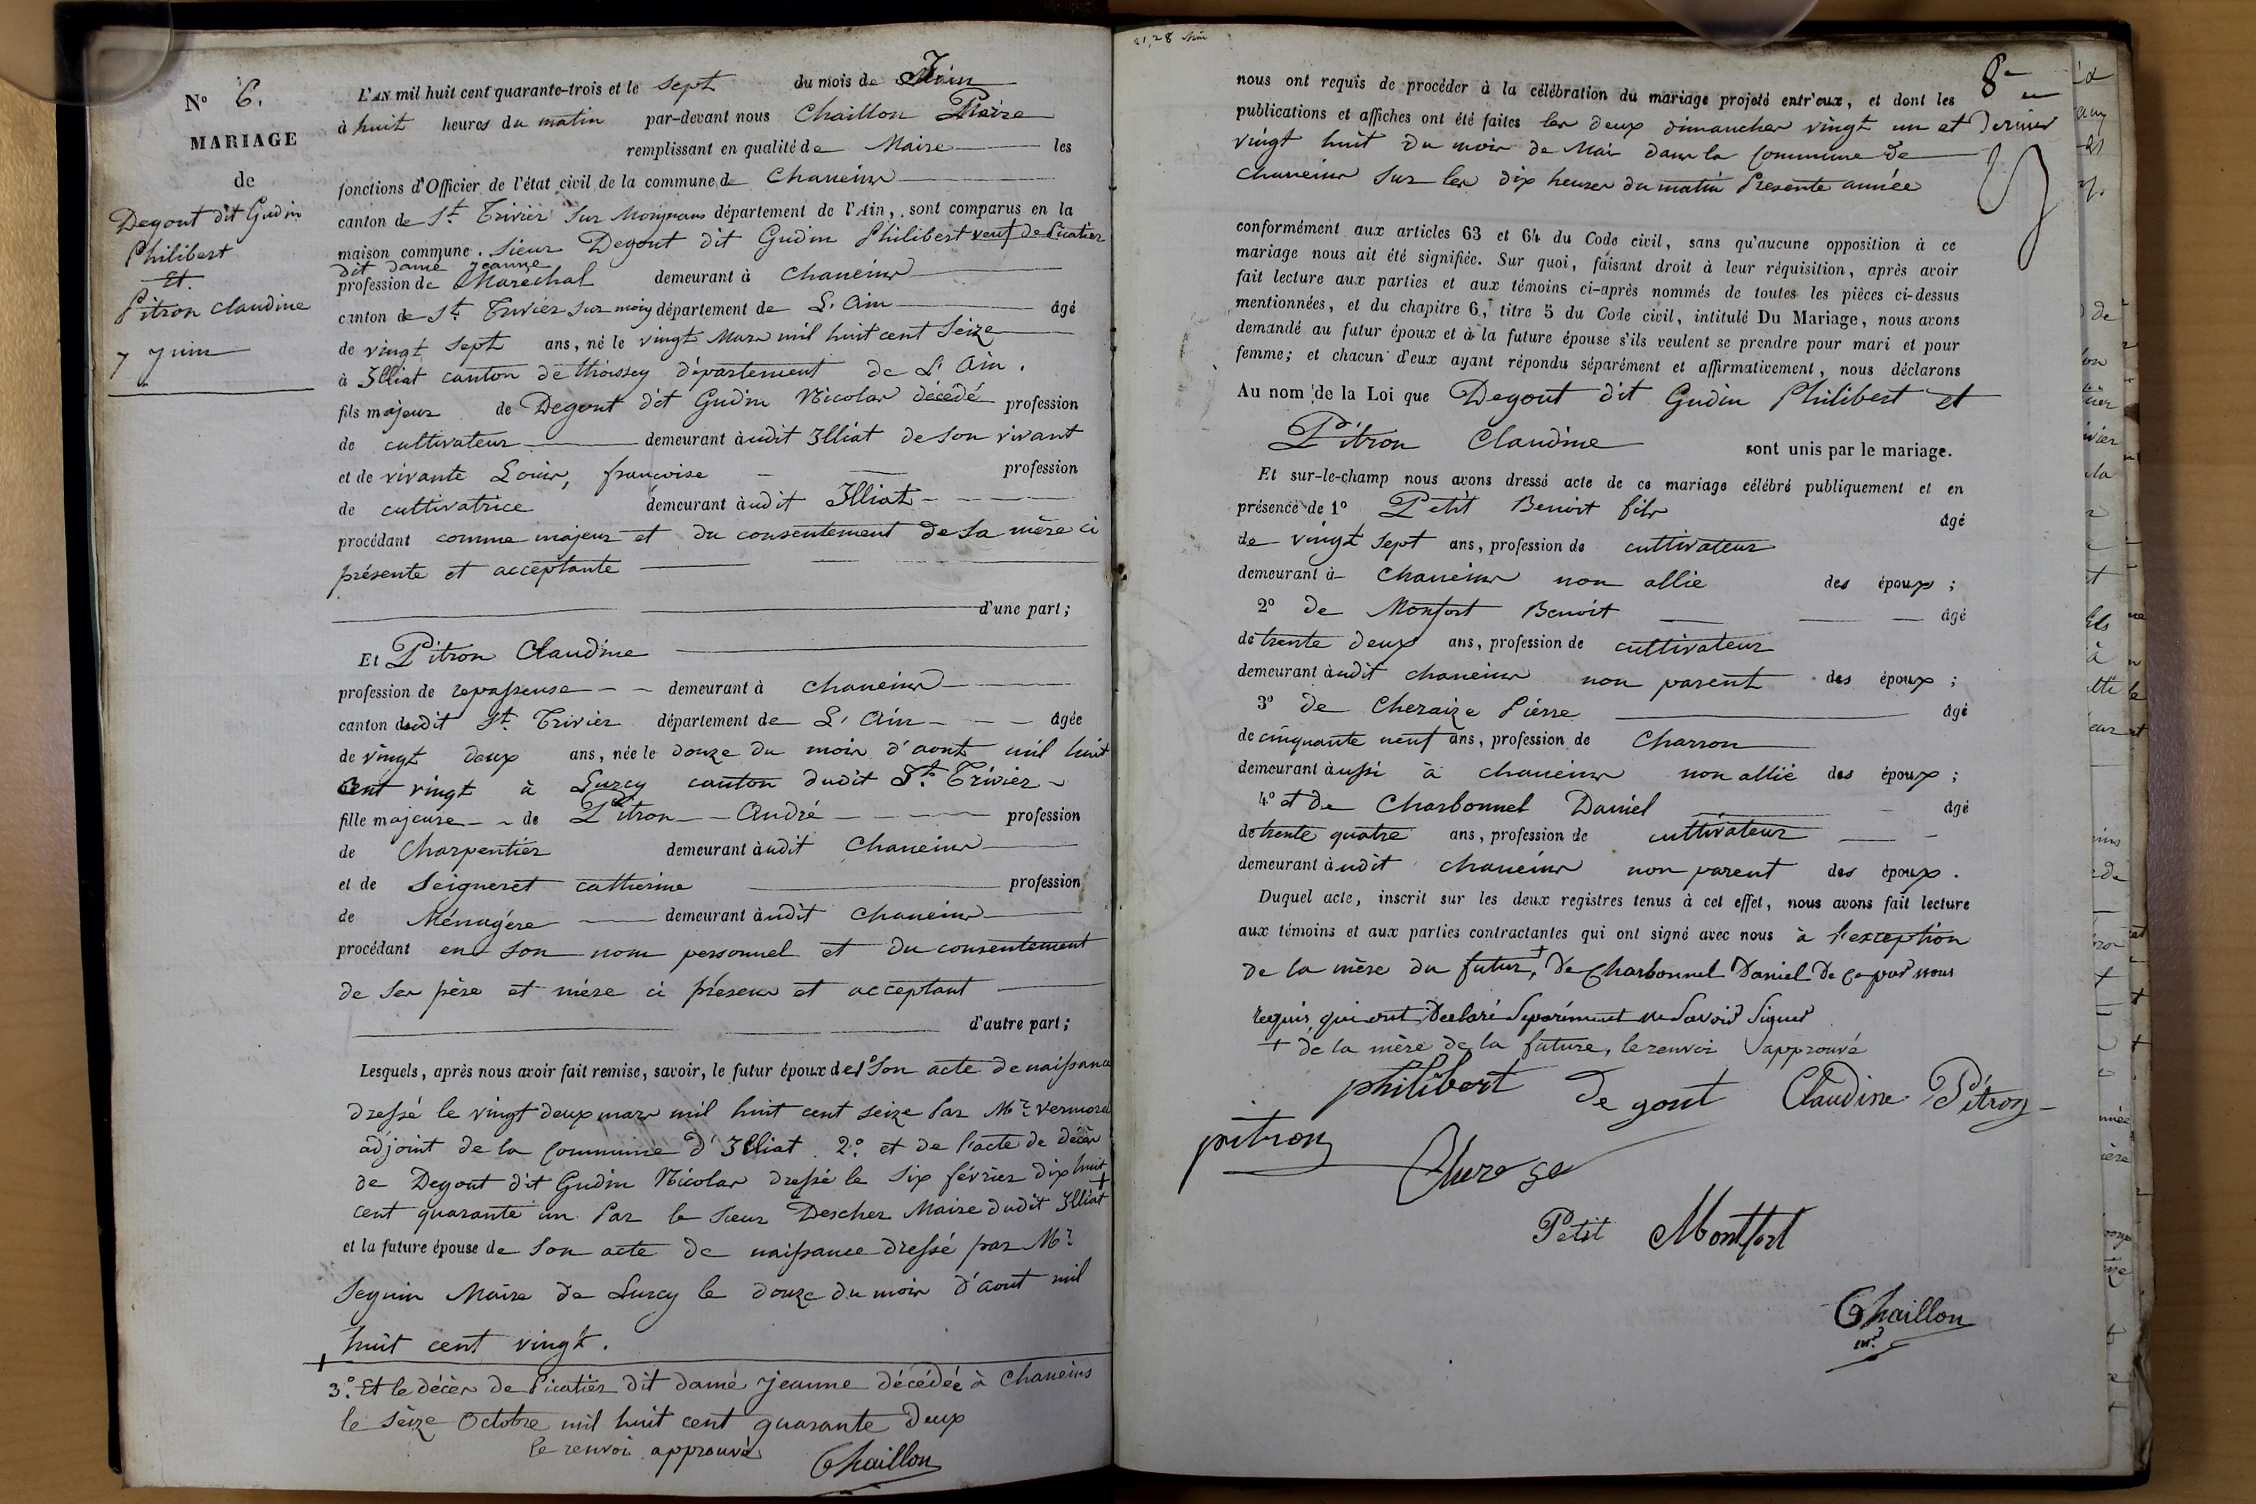 N° 6.
MARIAGE
de
Degout dit Gudin
Philibert
Et
Pitron Claudine
7 Juin
L'AN mil huit cent quarante-trois et le sept du mois de Juin
à huit heures du matin par-devant nous Chaillon Maire
remplissant en qualité de Maire les
fonctions d'Officier de l'état civil de la commune de Chaneins
canton de St Trivier sur Moignans département de l'Ain, sont comparus en la
maison commune. Sieur Degout dit Gudin Philibert veuf de Picatier
dit damé Jeanne
profession de Maréchal demeurant à Chaneins
canton de St Trivier sur moig département de L'Ain âgé
de vingt sept ans, né le vingt Mars mil huit cent Seize
à Illiat canton de thoissey département de L'Ain.
fils majeur de Degout dit Gudin Nicolas décédé profession
de cultivateur demeurant àudit Illiat de son vivant
et de vivante Louis, françoise profession
de cultivatrice demeurant àudit Illiat
procédant comme majeur et du consentement de sa mère ci
présente et acceptante
d'une part;
Et Pitron Claudine
profession de repasseuse demeurant à Chaneins
canton dudit St Trivier département de L'Ain âgée
de vingt deux ans, née le douze du mois d'aout mil huit
Cent vingt à Lurcy canton dudit St Trivier
fille majeure de Pitron André profession
de Charpentier demeurant àudit Chaneins
et de Seigneret catherine profession
de Ménagère demeurant àudit Chaneins
procédant en son nom personnel et du consentement
de ses père et mère ci présens et acceptant
d'autre part;
Lesquels, après nous avoir fait remise, savoir, le futur époux de 1° Son acte de naissance
dressé le vingt deux mars mil huit cent seize Par Mr Vermorel
adjoint de la Commune d'Illiat. 2° et de l'acte de décès
de Degout dit Gudin Nicolas dressé le six février dix huit +
cent quarante un Par le Sieur Descher Maire dudit Illiat
et la future épouse de Son acte de naissance dressé par Mr
Seguin Maire de Lurcy le douze du mois d'aout mil
huit cent vingt.
+ 3° Et le décès de Picatier dit damé Jeanne décédée à Chaneins
le seize Octobre mil huit cent quarante Deux
le renvoi approuvé
Chaillon
21, 28 Mai
8
nous ont requis de procéder à la célébration du mariage projeté entr'eux, et dont les
publications et affiches ont été faites les deux dimanches vingt un et Dernier
vingt huit du mois de Mai dans la Commune de
Chaneins sur les dix heures du matin Présente année
conformément aux articles 63 et 64 du Code civil, sans qu'aucune opposition à ce
mariage nous ait été signifiée. Sur quoi, faisant droit à leur réquisition, après avoir
fait lecture aux parties et aux témoins ci-après nommés de toutes les pièces ci-dessus
mentionnées, et du chapitre 6, titre 5 du Code civil, intitulé Du Mariage, nous avons
demandé au futur époux et à la future épouse s'ils veulent se prendre pour mari et pour
femme; et chacun d'eux ayant répondu séparément et affirmativement, nous déclarons
Au nom de la Loi que Degout dit Gudin Philibert et
Pitron Claudine sont unis par le mariage.
Et sur-le-champ nous avons dressé acte de ce mariage célébré publiquement et en
présence de 1° Petit Benoit fils âgé
de vingt sept ans, profession de cultivateur
demeurant à Chaneins non allié des époux;
2° de Monfort Benoit âgé
de trente deux ans, profession de cultivateur
demeurant àudit Chaneins non parent des époux;
3° de Cheraize Pierre âgé
de cinquante neuf ans, profession de Charron
demeurant àussi à Chaneins non allié des époux;
4° et de Charbonnel Daniel âgé
de trente quatre ans, profession de cultivateur
demeurant àudit Chaneins non parent des époux.
Duquel acte, inscrit sur les deux registres tenus à cet effet, nous avons fait lecture
aux témoins et aux parties contractantes qui ont signé avec nous à l'exception
de la mère du futur,+ de Charbonnel Daniel de ce par nous
requis, qui ont Déclaré Séparément ne Savoir Signer
+ de la mère de la future, le renvoi approuvé
philibert De gout Claudine Pitron
pitron
Petit Montfort
Chaillon